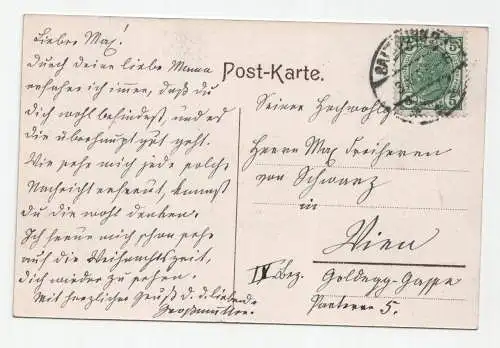 Lieber Max!
Durch deine liebe Mama
erfahre ich immer, daß du
dich wohl befindest, und es
dir überhaupt gut geht.
Wie sehr mich jede solche
Nachricht erfreut, kannst
du dir wohl denken.
Ich freue mich schon sehr
auf die Weihnachtszeit,
dich wieder zu sehen.
Mit herzlichem Gruß d. d. liebende
Großmutter.
Post-Karte.
5 5
Seiner Hochwohlg.
Herrn Max Freiherrn
von Schwarz
in
Wien
IV Bez. Goldegg-Gasse
Parterre 5.